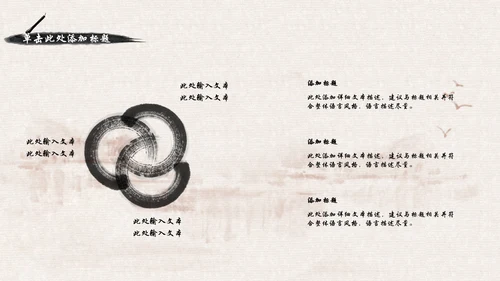 单击此处添加标题
此处输入文本
此处输入文本
此处输入文本
此处输入文本
此处输入文本
此处输入文本
添加标题
此处添加详细文本描述，建议与标题相关并符
合整体语言风格，语言描述尽量。
添加标题
此处添加详细文本描述，建议与标题相关并符
合整体语言风格，语言描述尽量。
添加标题
此处添加详细文本描述，建议与标题相关并符
合整体语言风格，语言描述尽量。